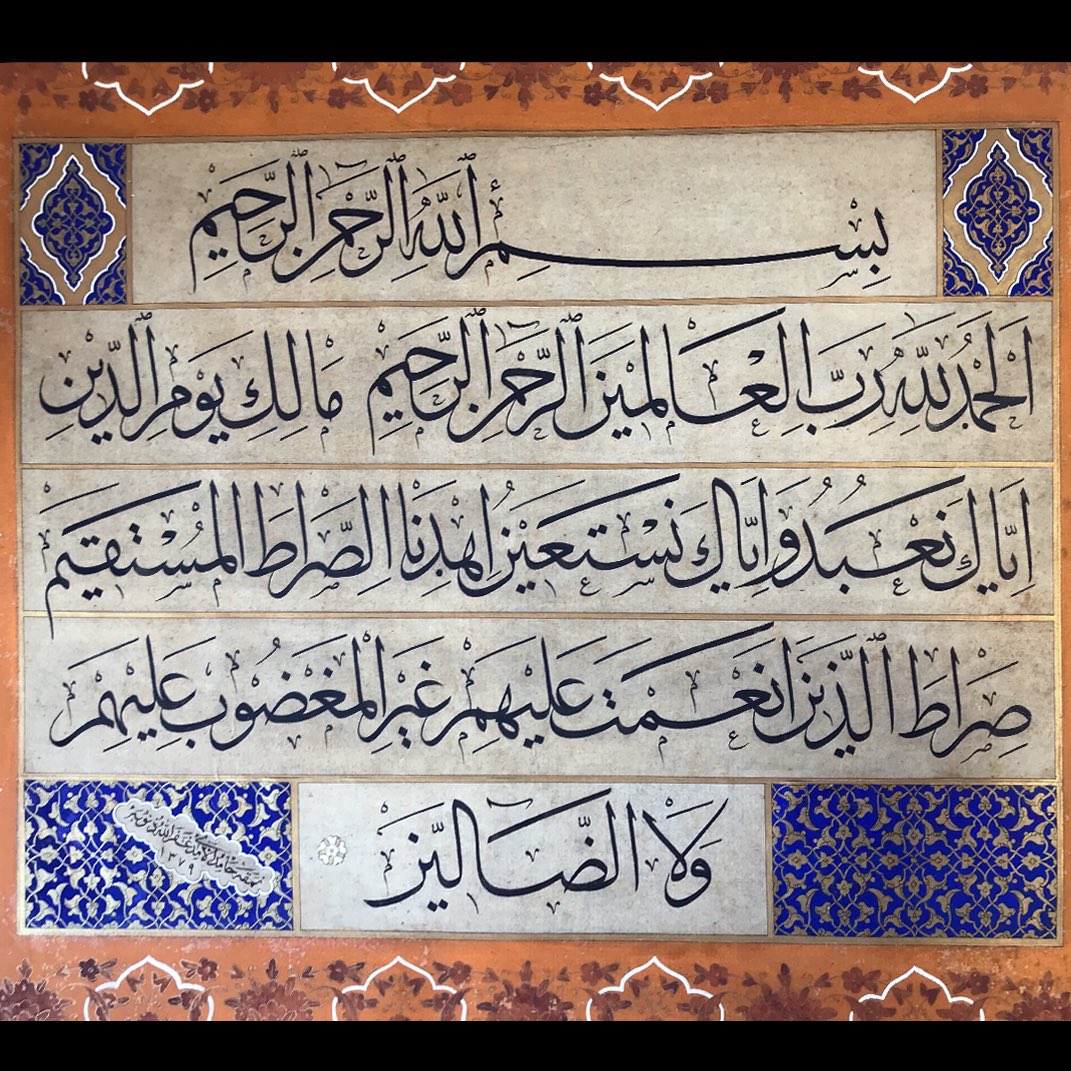 بِسْمِ اللّٰهِ الرَّحْمٰنِ الرَّحِيمِ
اَلْحَمْدُ لِلّٰهِ رَبِّ الْعَالَمِينَ الرَّحْمٰنِ الرَّحِيمِ مَالِكِ يَوْمِ الدِّينِ
اِيَّاكَ نَعْبُدُ وَاِيَّاكَ نَسْتَعِينُ اِهْدِنَا الصِّرَاطَ الْمُسْتَقِيمَ
صِرَاطَ الَّذِينَ اَنْعَمْتَ عَلَيْهِمْ غَيْرِ الْمَغْضُوبِ عَلَيْهِمْ
وَلَا الضَّالِّينَ
نمقه حامد الآمدي غفر الله ذنوبه
١٣٧٩